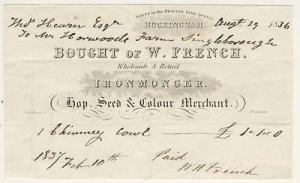 AGENT TO THE PHOENIX FIRE OFFICE
BUCKINGHAM, Augt 29 1836
Thos Hearn Esqr
To Mr Horwoods Farm Singleborough
BOUGHT OF W. FRENCH,
Wholesale & Retail
IRONMONGER,
Hop, Seed & Colour Merchant.
1 Chimney Cowl £1 1 0
1837 Feb 10th Paid
W French